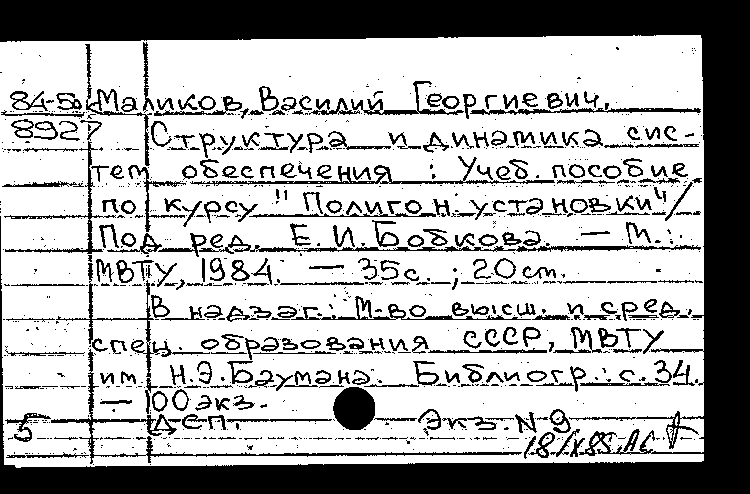 84-5 Маликов, Василий Георгиевич.
8927 Структура и динамика сис-
тем обеспечения : Учеб. пособие
по курсу "Полигон. установки"/
Под ред. Е.И.Бобкова. — М.:
МВТУ, 1984. — 35с. ; 20см.
В надзаг.: М-во высш. и сред.
спец. образования СССР, МВТУ
им. Н.Э.Баумана. Библиогр.: с.34.
— 100экз.
5 ДСП. Экз. N 9
18/IX85.